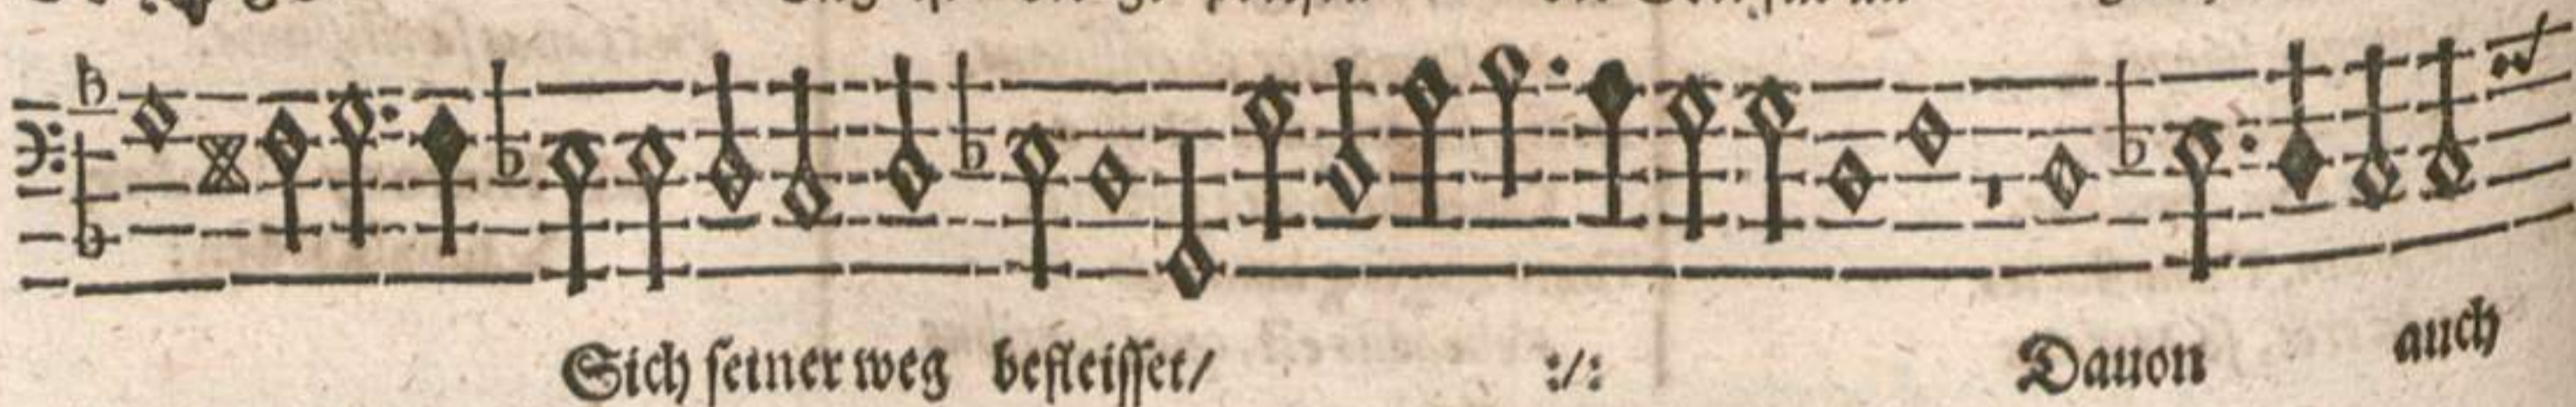 Sich seiner weg befleisset/ :/: Dauon auch